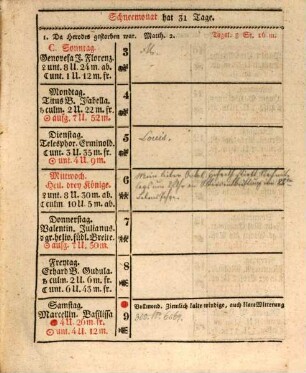 Schneemonat hat 31 Tage.
1. Da Herodes gestorben war. Matth. 2.
Tagsl. 8 St. 16 m.
C. Sonntag.
Genovefa J. Florenz.
2 unt. 8 U. 24 m. ab.
unt. 1 U. 12 m. fr.
3
Montag.
Titus B. Isabella.
culm. 2 U. 22 m. fr.
☉ aufg. 7 U. 52 m.
4
Dienstag.
Telesphor. Erminold.
unt. 3 U. 35 m. fr.
☉ unt. 4 U. 9 m.
5
Mittwoch.
Heil. drey Könige.
2 unt. 8 U. 30 m. ab.
culm. 10 U. 5 m. ab.
6
Mein lieber
Donnerstag.
Valentin. Julianus.
gr. helio. südl. Breite.
☉ aufg. 7 U. 50 m.
7
Freytag.
Erhard B. Gudula.
culm. 2 U. 6 m. fr.
unt. 6 U. 45 m. fr.
8
Samstag.
Marcellin. Basilissa
4 U. 26 m. fr.
☉ unt. 4 U. 12 m.
9
Vollmond. Ziemlich kalte windige, auch klare Witterung